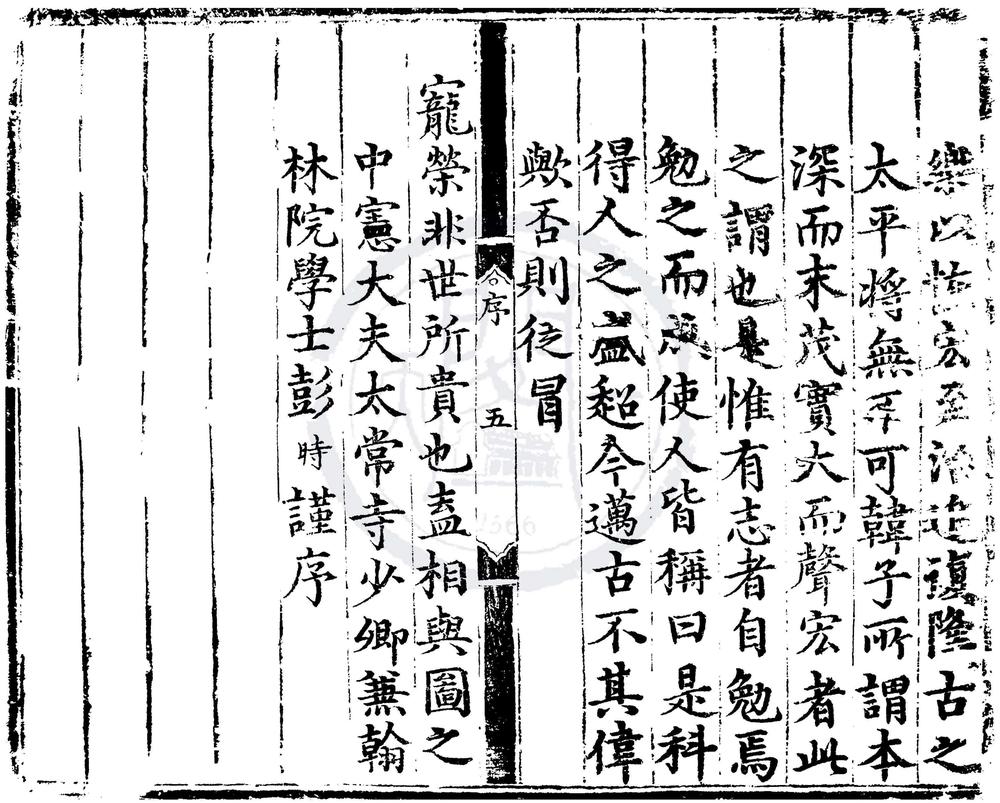 樂以恢宏至治追復隆古之
太平將無不可韓子所謂本
深而末茂實大而聲宏者此
之謂也是惟有志者自勉焉
勉之而成使人皆稱曰是科
得人之盛超今邁古不其偉
歟否則徒冒
序 五
寵榮非世所貴也盍相與圖之
中憲大夫太常寺少卿兼翰
林院學士彭時謹序